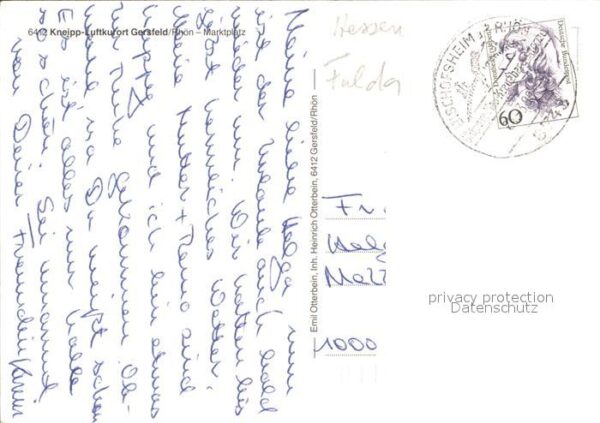 6412 Kneipp-Luftkurort Gersfeld/Rhön – Marktplatz
Meine liebe Helga, nun
ist der Urlaub auch bald
wieder um. Wir hatten bis
jetzt herrliches Wetter.
Meine Mutter + sind
knuppig und ich bin etwas
zur Ruhe gekommen. Ob-
wohl na Du weißt schon
Es ist alles nur halb
so schön. Sei umarmt
von Deiner Freundin Karin
Emil Otterbein, Inh. Heinrich Otterbein, 6412 Gersfeld/Rhön
Hessen
Fulda
BISCHOFSHEIM a.d. RHÖN
Deutsche Bundespost
60
Fr.
Helg
1000
privacy protection
Datenschutz